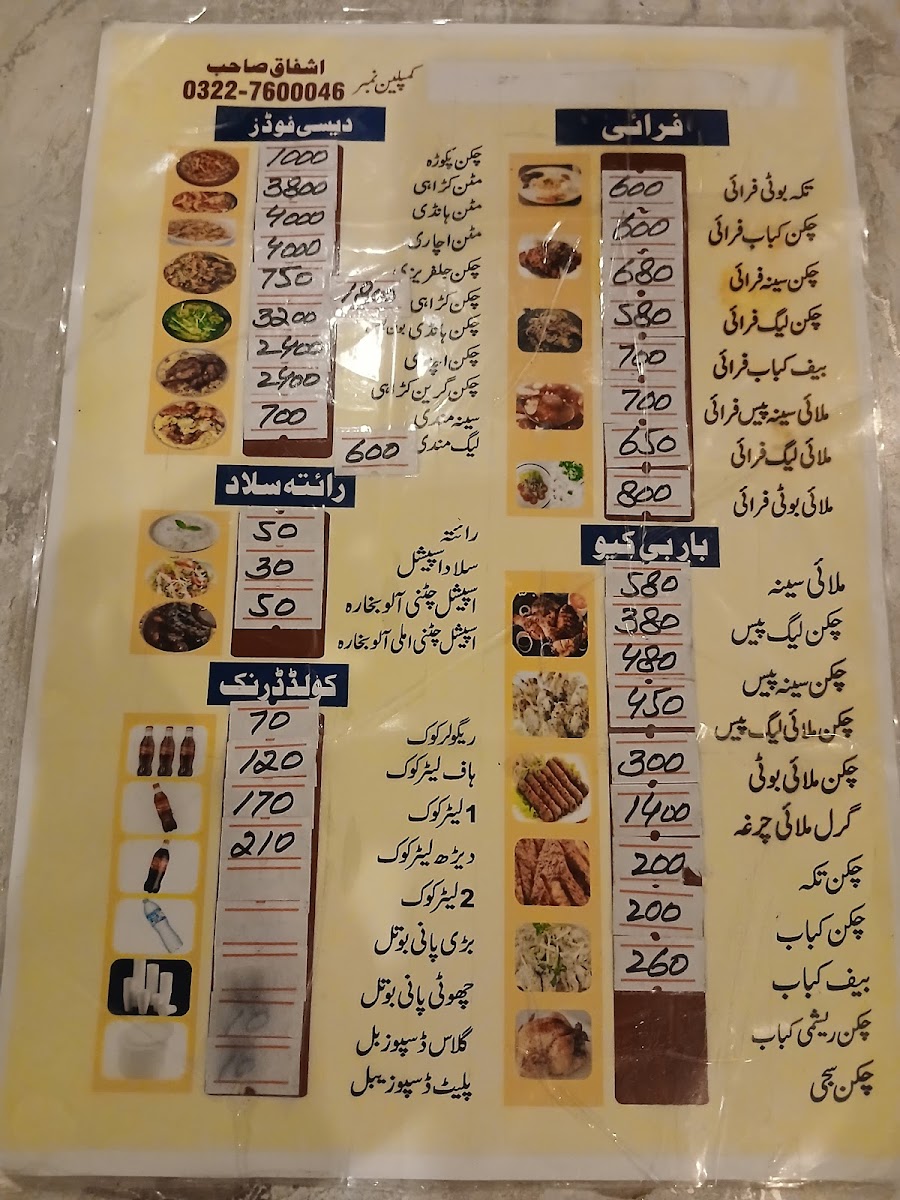 اشفاق صاحب
کمپلین نمبر 0322-7600046
فرائی
تکہ بوٹی فرائی 600
چکن کباب فرائی 600
چکن سینہ فرائی 680
چکن لیگ فرائی 580
بیف کباب فرائی 700
ملائی سینہ پیس فرائی 700
ملائی لیگ فرائی 650
ملائی بوٹی فرائی 800
باربی کیو
ملائی سینہ 580
چکن لیگ پیس 380
چکن سینہ پیس 480
چکن ملائی لیگ پیس 450
چکن ملائی بوٹی 300
گرل ملائی چرغہ 1400
چکن تکہ 200
چکن کباب 200
بیف کباب 260
چکن ریشمی کباب
چکن سجی
دیسی فوڈز
چکن پکوڑہ 1000
مٹن کڑاہی 3800
مٹن ہانڈی 4000
مٹن اچاری 4000
چکن جلفریزی 750
چکن کڑاہی 1800
چکن ہانڈی 3200
چکن اچاری 2400
چکن گرین کڑاہی 2400
سینہ مندی 700
لیگ مندی 600
رائتہ سلاد
رائتہ 50
سلاد اسپیشل 30
اسپیشل چٹنی آلو بخارہ 50
اسپیشل چٹنی املی آلو بخارہ
کولڈ ڈرنک
ریگولر کوک 70
ہاف لیٹر کوک 120
1 لیٹر کوک 170
دیڑھ لیٹر کوک 210
2 لیٹر کوک
بڑی پانی بوتل
چھوٹی پانی بوتل
گلاس ڈسپوزیبل
پلیٹ ڈسپوزیبل